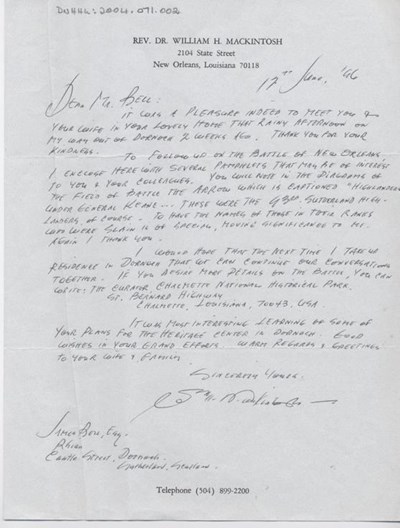 DNHHL: 2004.071.002
REV. DR. WILLIAM H. MACKINTOSH
2104 State Street
New Orleans, Louisiana 70118
12th June, '96
Dear Mr. Bell:
It was a pleasure indeed to meet you &
your wife in your lovely home that rainy afternoon on
my way out of Dornoch 2 weeks ago. Thank you for your
kindness.
To follow up on the Battle of New Orleans
I enclose here with several pamphlets that may be of interest
to you & your colleagues. You will note in the diagrame of
the field of battle the arrow which is captioned "Highlanders
under General Keane... These were the 93rd Sutherland High-
landers, of course. To have the names of those in their ranks
who were slain is of special, moving significance to me.
Again I thank you.
I would hope that the next time I take up
residence in Dornoch that we can continue our conversations
together. If you desire more details on the battle, you can
write: The Curator, Chalmette National Historical Park,
St. Bernard Highway
Chalmette, Louisiana, 70043, USA
It was most interesting learning of some of
your plans for the Heritage Center in Dornoch. Good
wishes in your grand efforts. Warm regards & greetings
to your wife & family.
Sincerely yours,
James Bell, Esq.
Castle Street, Dornoch
Sutherland, Scotland
Telephone (504) 899-2200